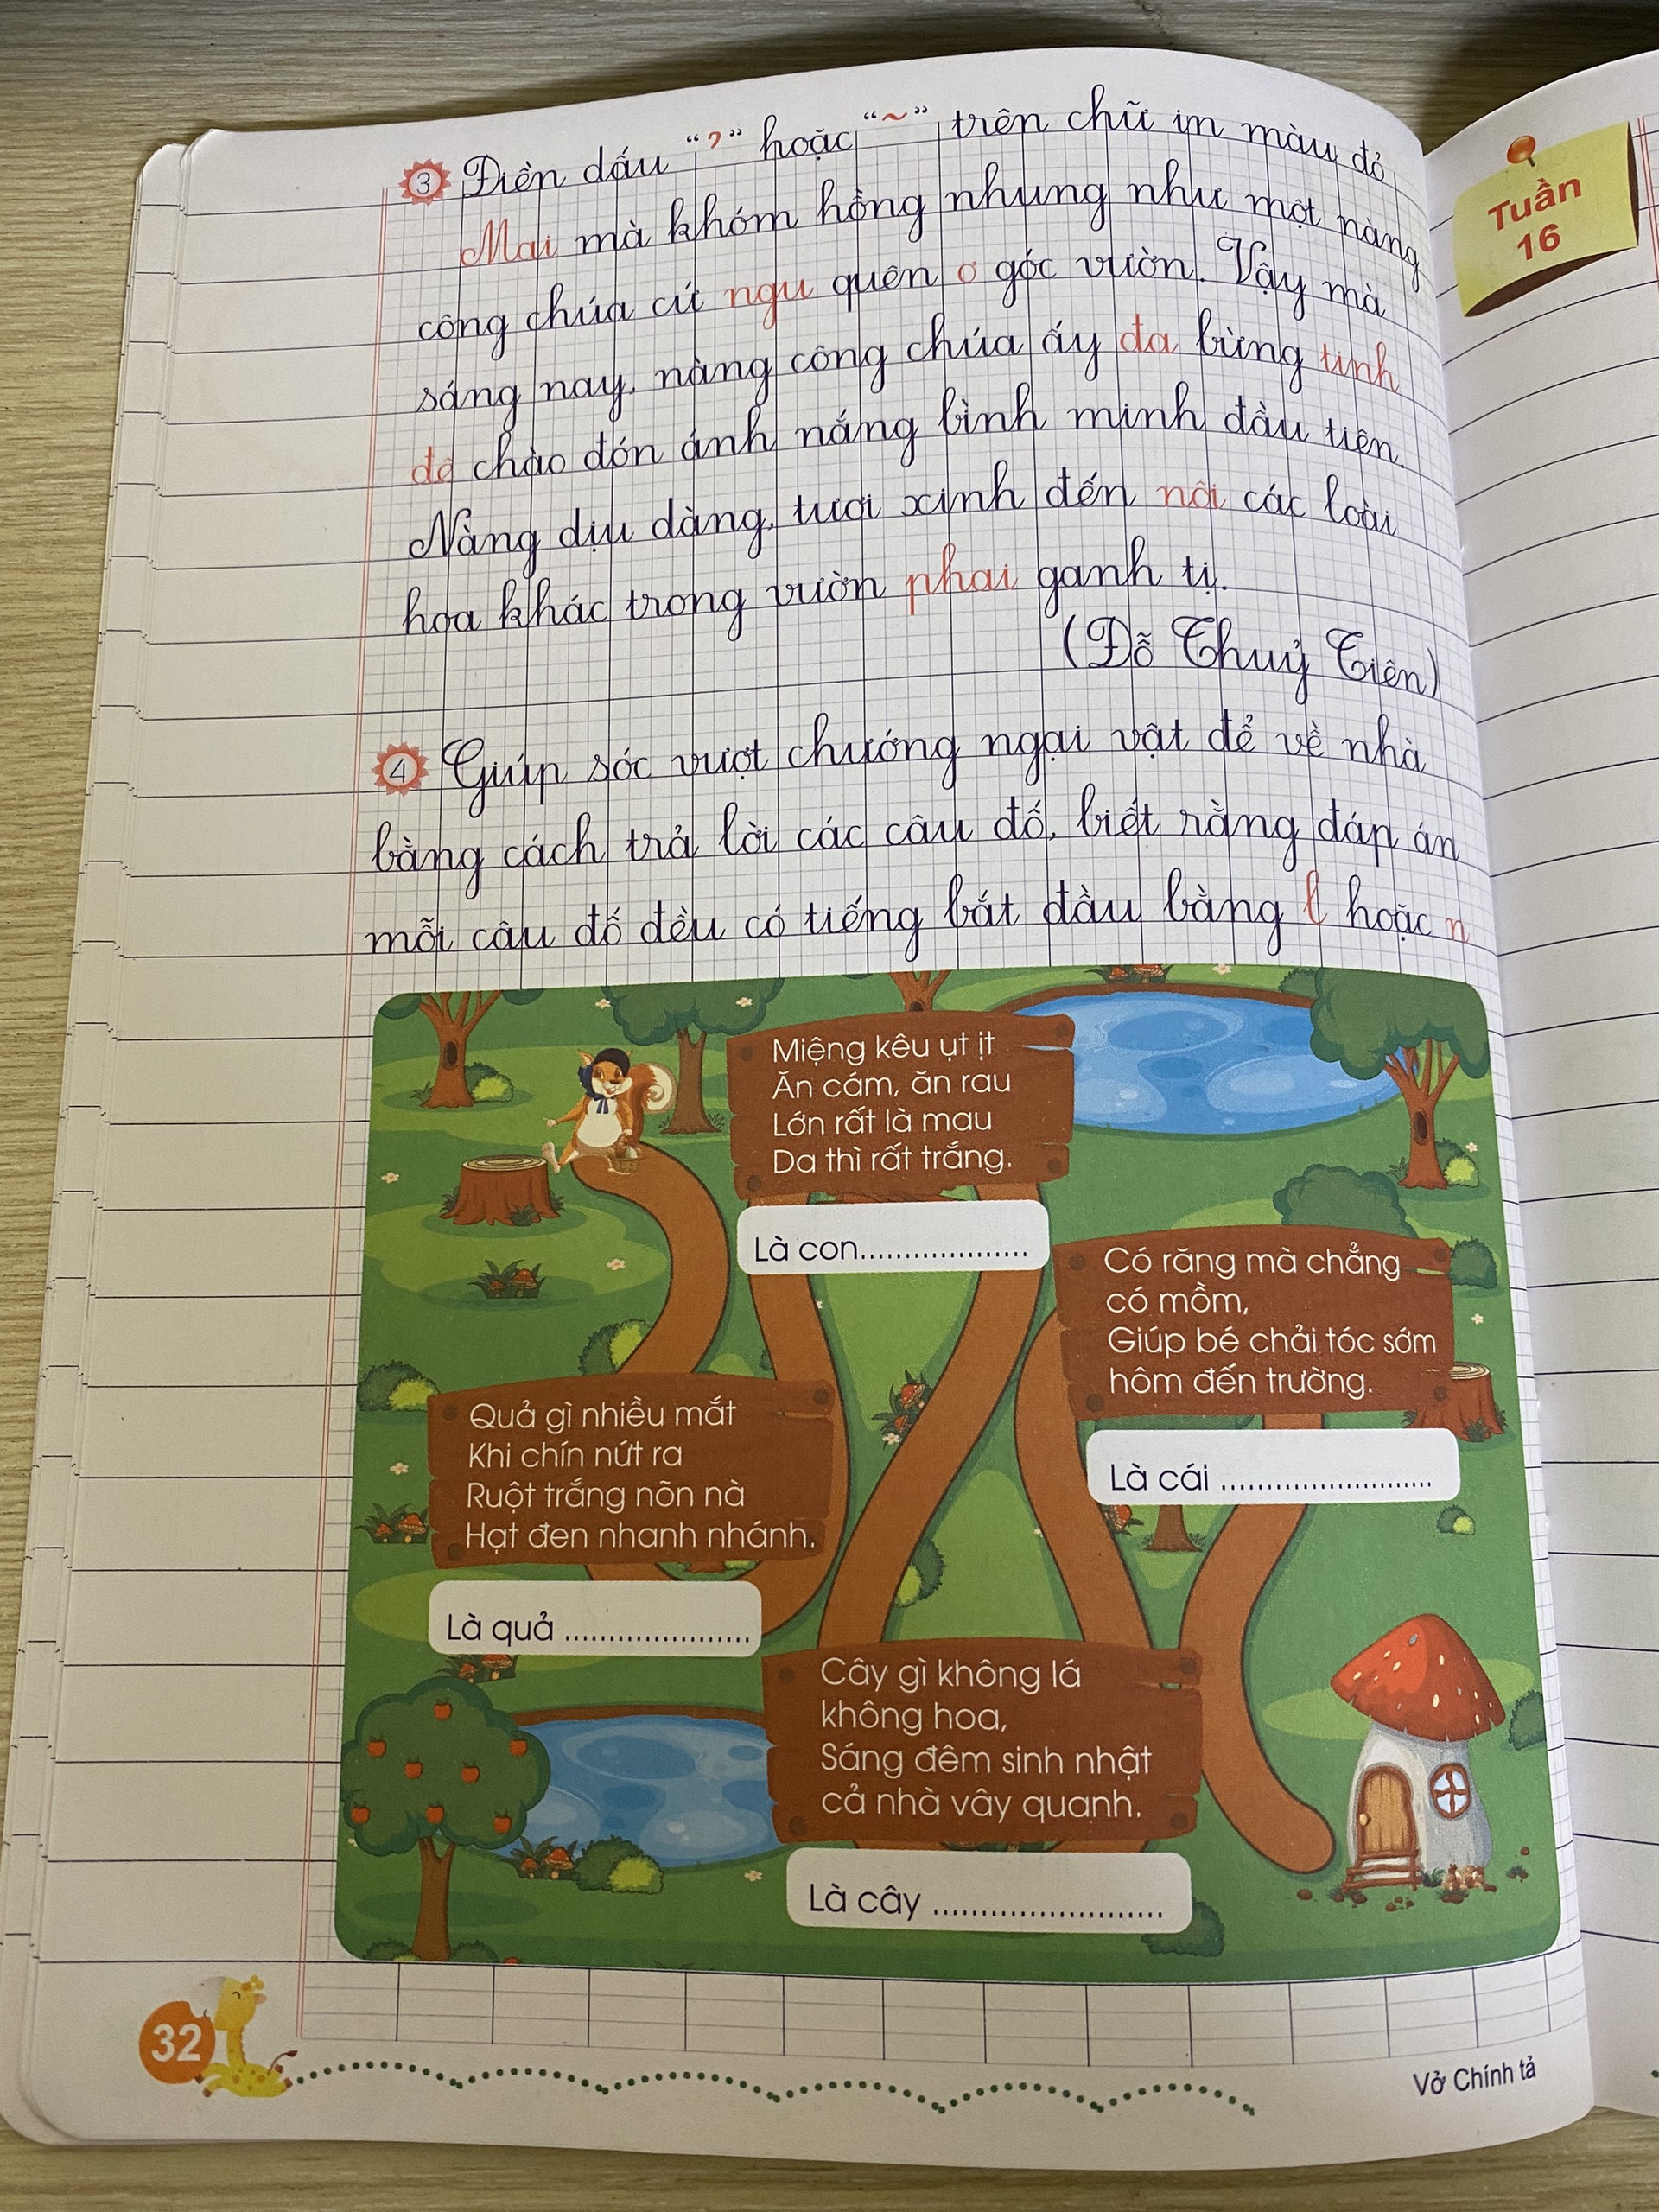 3 Điền dấu "?" hoặc "~" trên chữ in màu đỏ
Mai mà khóm hồng nhung như một nàng
công chúa cứ ngu quên ơ góc vườn. Vậy mà
sáng nay, nàng công chúa ấy đa bừng tinh
đê chào đón ánh nắng bình minh đầu tiên.
Nàng dịu dàng, tươi xinh đến nôi các loài
hoa khác trong vườn phai ganh tị.
(Đỗ Thuỷ Tiên)
4 Giúp sóc vượt chướng ngại vật để về nhà
bằng cách trả lời các câu đố, biết rằng đáp án
mỗi câu đố đều có tiếng bắt đầu bằng l hoặc n
Miệng kêu ụt ịt
Ăn cám, ăn rau
Lớn rất là mau
Da thì rất trắng.
Là con....................
Có răng mà chẳng
có mồm,
Giúp bé chải tóc sớm
hôm đến trường.
Là cái .........................
Quả gì nhiều mắt
Khi chín nứt ra
Ruột trắng nõn nà
Hạt đen nhanh nhánh.
Là quả ......................
Cây gì không lá
không hoa,
Sáng đêm sinh nhật
cả nhà vây quanh.
Là cây .........................
32
Vở Chính tả
Tuần
16